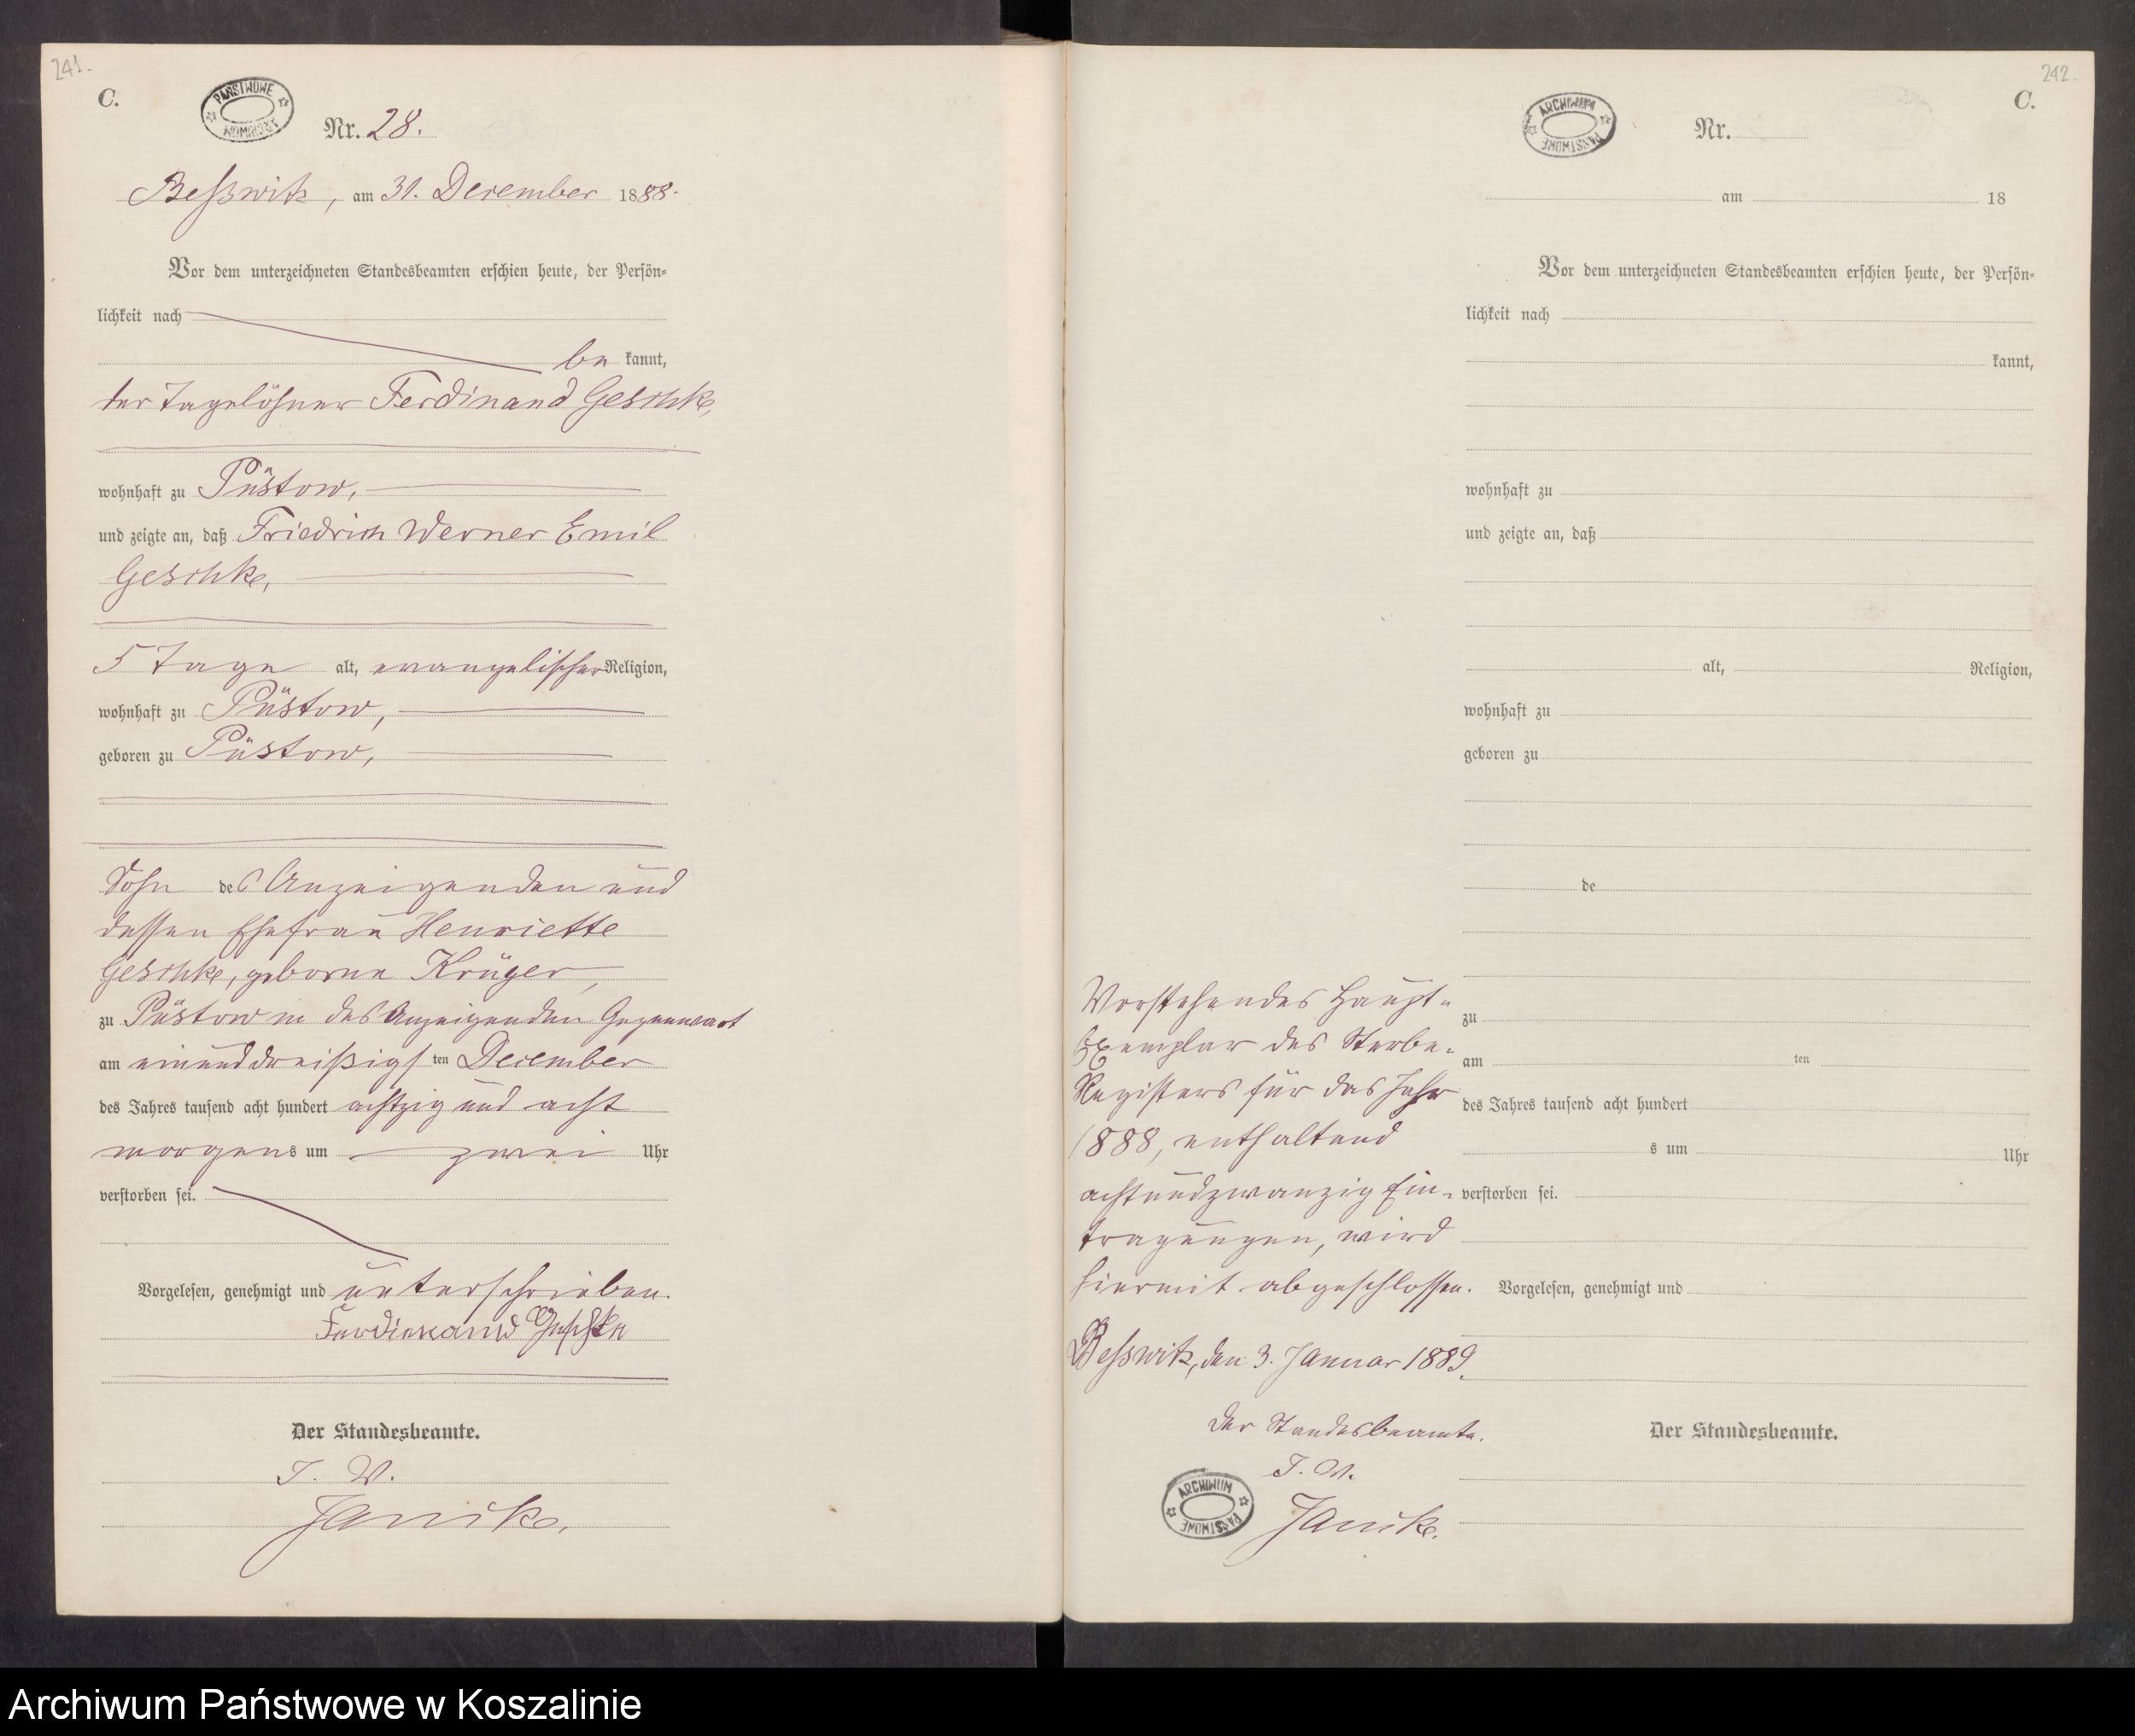 241.
C.
PAŃSTWOWE
Nr. 28.
Beßwitz, am 31. December 1888.
Vor dem unterzeichneten Standesbeamten erschien heute, der Persön-
lichkeit nach
be kannt,
der Tagelöhner Ferdinand Geschke,
wohnhaft zu Püstow,
und zeigte an, daß Friedrich Werner Emil
Geschke,
5 Tage alt, evangelischer Religion,
wohnhaft zu Püstow,
geboren zu Püstow,
Sohn des Anzeigenden und
dessen Ehefrau Henriette
Geschke, geborne Krüger,
zu Püstow in des Anzeigenden Gegenwart
am einunddreißigsten December
des Jahres tausend acht hundert achtzig und acht
morgens um zwei Uhr
verstorben sei.
Vorgelesen, genehmigt und unterschrieben.
Ferdinand Geschke
Der Standesbeamte.
J. V.
Janike.
242.
C.
ARCHIWUM PAŃSTWOWE
Nr.
am 18
Vor dem unterzeichneten Standesbeamten erschien heute, der Persön-
lichkeit nach
kannt,
wohnhaft zu
und zeigte an, daß
alt, Religion,
wohnhaft zu
geboren zu
de
zu
am ten
des Jahres tausend acht hundert
s um Uhr
verstorben sei.
Vorgelesen, genehmigt und
Der Standesbeamte.
Vorstehendes Haupt-
Exemplar des Sterbe-
Registers für das Jahr
1888, enthaltend
achtundzwanzig Ein-
tragungen, wird
hiermit abgeschlossen.
Beßwitz, den 3. Januar 1889.
Der Standesbeamte.
J. V.
Janike.
ARCHIWUM PAŃSTWOWE
Archiwum Państwowe w Koszalinie